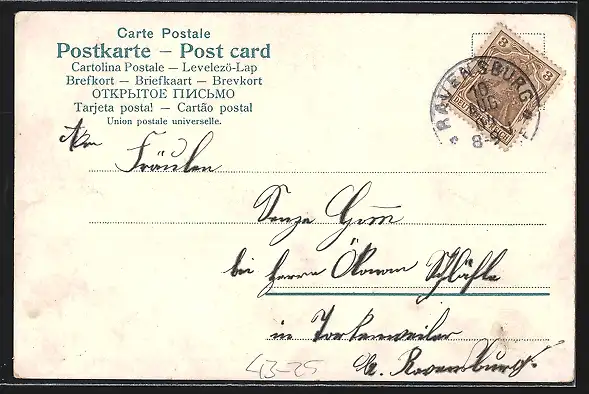 Carte Postale
Postkarte – Post card
Cartolina Postale – Levelező-Lap
Brefkort – Briefkaart – Brevkort
ОТКРЫТОЕ ПИСЬМО
Tarjeta postal – Cartão postal
Union postale universelle.
3 3
RAVENSBURG
10
AUG
8-9
An
Fräulen
Senze
bei Herrn Ökonom Schäfle
in Torkenweiler
b. Ravensburg.
43-25